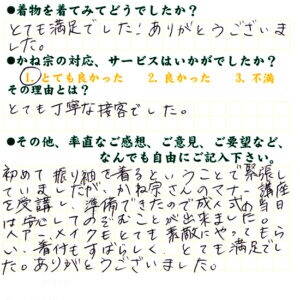 ●着物を着てみてどうでしたか？
とても満足でした！ありがとうございま
した。
●かね宗の対応、サービスはいかがでしたか？
1. とても良かった　2. 良かった　3. 不満
その理由とは？
とても丁寧な接客でした。
●その他、率直なご感想、ご意見、ご要望など、
なんでも自由にご記入下さい。
初めて振り袖を着るということで緊張し
ていましたが、かね宗さんのマナー講座
を受講し、準備できたので成人式の当日
は安心してのぞむことが出来ました。
ヘアーメイクもとても素敵にやってもら
い、着付もすばらしく、とても満足でし
た。ありがとうございました。